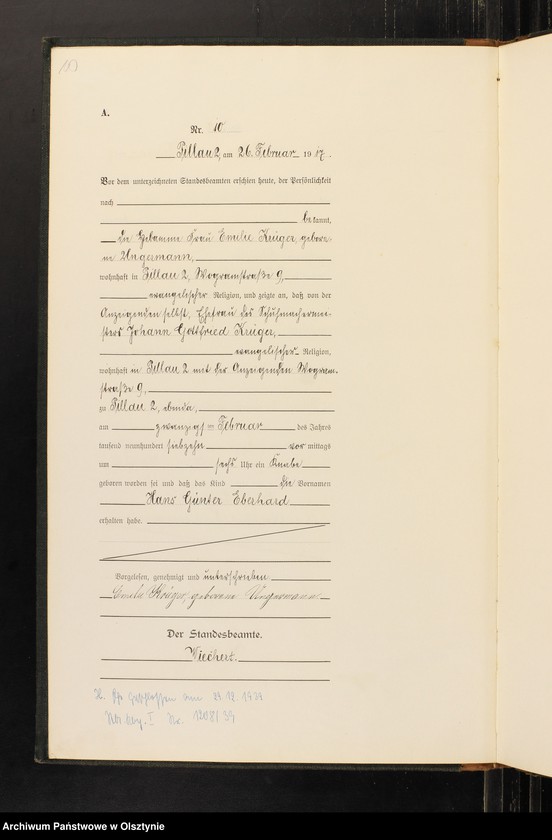 A.
Nr. 10
Pillau 2, am 26. Februar 1917.
Vor dem unterzeichneten Standesbeamten erschien heute, der Persönlichkeit
nach
bekannt,
die Hebamme Frau Emilie Krüger, gebore-
ne Ungermann,
wohnhaft in Pillau 2, Wogramstraße 9,
evangelischer Religion, und zeigte an, daß von der
Anzeigenden selbst, Ehefrau des Schuhmachermei-
sters Johann Gottfried Krüger,
evangelischer Religion,
wohnhaft in Pillau 2 mit der Anzeigenden Wogram-
straße 9,
zu Pillau 2, ebenda,
am zwanzigsten Februar des Jahres
tausend neunhundert siebzehn vor mittags
um sechs Uhr ein Knabe
geboren worden sei und daß das Kind die Vornamen
Hans Günter Eberhard
erhalten habe.
Vorgelesen, genehmigt und unterschrieben
Emilie Krüger, geborene Ungermann
Der Standesbeamte.
Wiechert.
H. geschlossen am 24.12.1939
I Nr. 1208/39
Archiwum Państwowe w Olsztynie